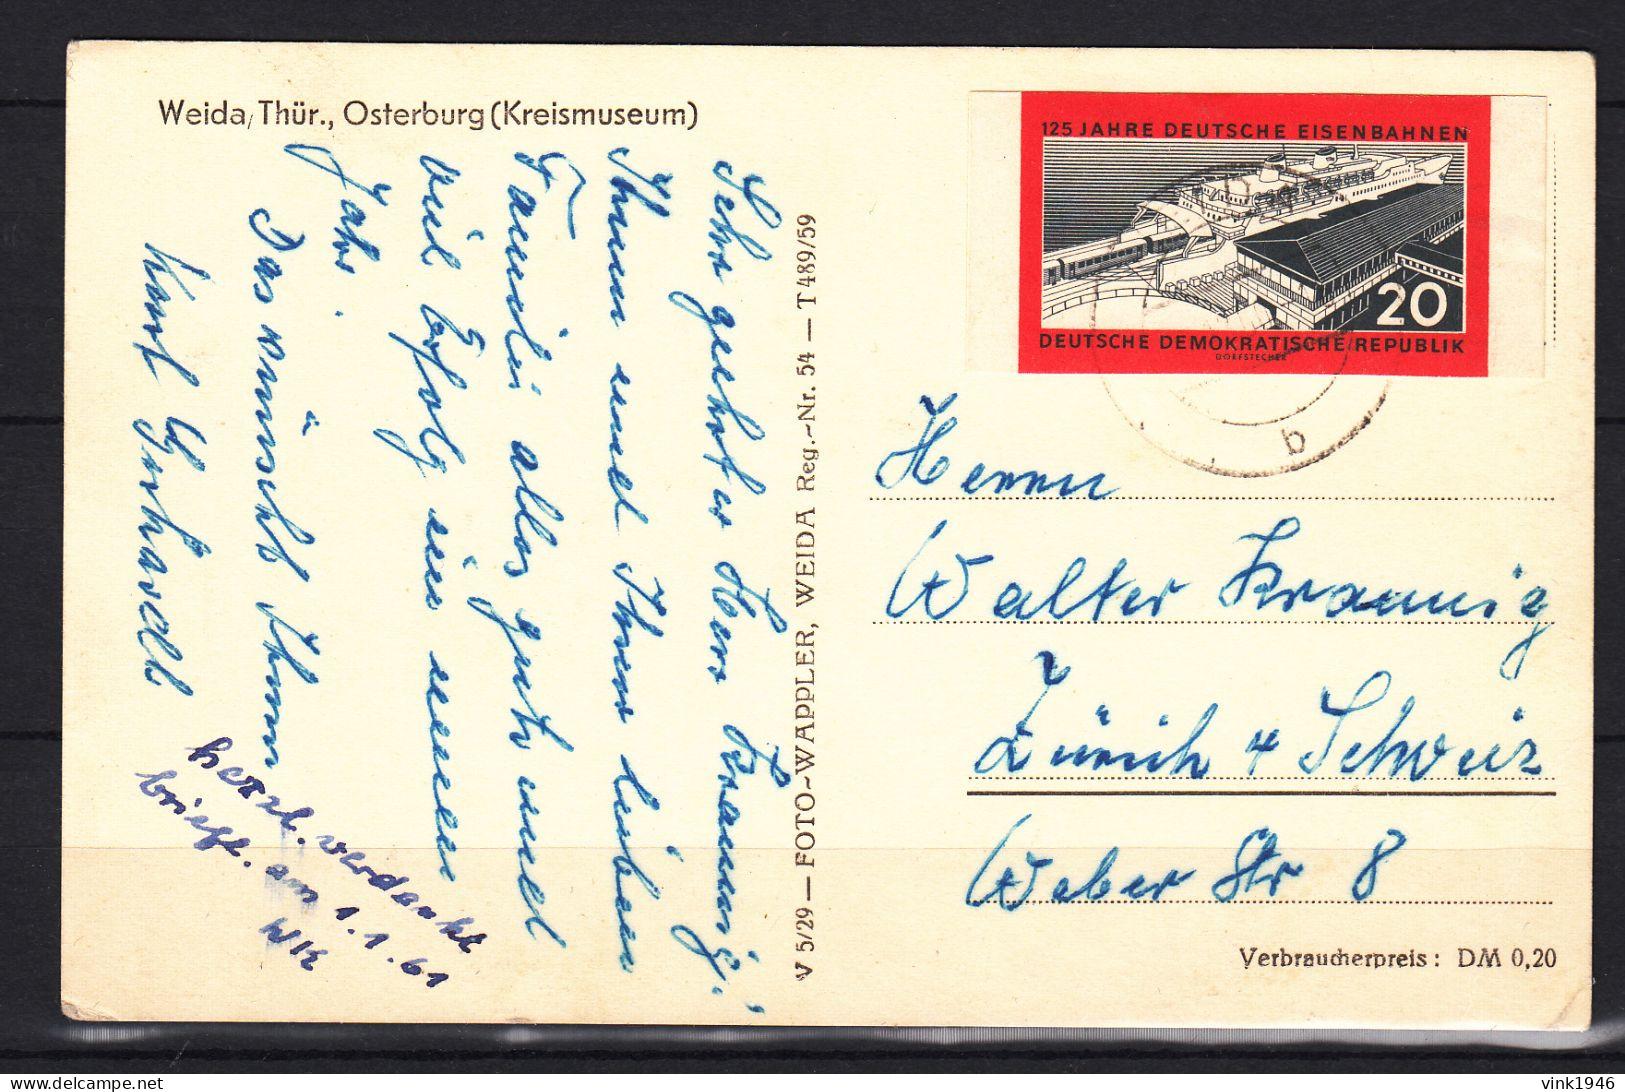 Weida, Thür., Osterburg (Kreismuseum)
Sehr geehrter Herr Kramig,
Ihnen und Ihrer lieben
Familie alles gute und
viel Erfolg im neuen
Jahr.
Das wünscht Ihnen
Kurt
herzl. verdankt
briefl. am 1.1.61
WK
V 5/29 — FOTO-WAPPLER, WEIDA Reg.-Nr. 54 — T 489/59
125 JAHRE DEUTSCHE EISENBAHNEN
20
DEUTSCHE DEMOKRATISCHE REPUBLIK
DORFSTECHER
b
Herrn
Walter
Zürich 4 Schweiz
Weber Str 8
Verbraucherpreis: DM 0,20
vink1946